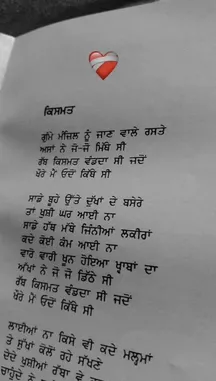 ਕਿਸਮਤ
ਗੁੰਮੇ ਮੰਜ਼ਿਲ ਨੂੰ ਜਾਣ ਵਾਲੇ ਰਸਤੇ
ਅਸਾਂ ਨੇ ਜੋ-ਜੋ ਮਿੱਥੇ ਸੀ
ਰੱਬ ਕਿਸਮਤ ਵੰਡਦਾ ਸੀ ਜਦੋਂ
ਖੌਰੇ ਮੈਂ ਓਦੋਂ ਕਿੱਥੇ ਸੀ
ਸਾਡੇ ਬੂਹੇ ਉੱਤੇ ਦੁੱਖਾਂ ਦੇ ਬਸੇਰੇ
ਤਾਂ ਖੁਸ਼ੀ ਘਰ ਆਈ ਨਾ
ਸਾਡੇ ਹੱਥ ਮੱਥੇ ਜਿੰਨੀਆਂ ਲਕੀਰਾਂ
ਕਦੇ ਕੋਈ ਕੰਮ ਆਈ ਨਾ
ਵਾਰੋ ਵਾਰੀ ਖੂਨ ਹੋਇਆ ਖ਼ੁਾਬਾਂ ਦਾ
ਅੱਖਾਂ ਨੇ ਜੋ ਜੋ ਡਿੱਠੇ ਸੀ
ਰੱਬ ਕਿਸਮਤ ਵੰਡਦਾ ਸੀ ਜਦੋਂ
ਖੌਰੇ ਮੈਂ ਓਦੋਂ ਕਿੱਥੇ ਸੀ
ਲਾਈਆਂ ਨਾ ਕਿਸੇ ਵੀ ਕਦੇ ਮਲ੍ਹਮਾਂ
ਤੇ ਸੁੱਖਾਂ ਕੋਲੋਂ ਰਹੇ ਸੱਖਣੇ
ਦੇਦੇ ਖੁਸ਼ੀਆਂ ਰੱਬਾ ਵੇ
ਚਾਹੁੰਦੇ ਨੇ